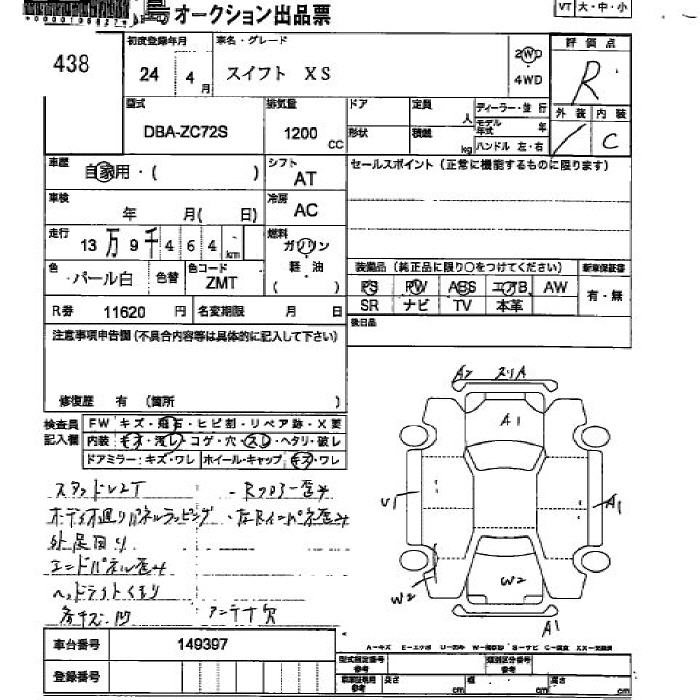 オークション出品票
VT 大・中・小
438
初度登録年月
24 4月
車名・グレード
スイフト XS
2WD
4WD
評価点
R
型式
DBA-ZC72S
排気量
1200 CC
ドア
定員 人
形状
積載 kg
ディーラー・並行
モデル年式 年
ハンドル 左・右
外装 内装
C
車歴
自家用・( )
シフト
AT
セールスポイント(正常に機能するものに限ります)
車検
年 月( 日)
冷房
AC
走行
13万9千464km
燃料
ガソリン
軽・油
( )
色
パール白
色替
色コード
ZMT
装備品(純正品に限り○をつけてください)
新車保証書
PS PW ABS エアB AW
有・無
SR ナビ TV 本革
R番 11620 円
名変期限 月 日
後日品
注意事項申告欄(不具合内容等は具体的に記入して下さい)
修復歴 有 (箇所 )
検査員記入欄
FW キズ・飛石・ヒビ割・リペア跡・X要
内装 キズ・汚レ・コゲ・穴・スレ・ヘタリ・破レ
ドアミラー:キズ・ワレ ホイール・キャップ キズ・ワレ
外足回り
エンドパネル歪み
ヘッドライトくもり
アンテナ欠
A2 スリA
A1
U1
A1
W2
W2
A1
車台番号 149397
登録番号
型式指定番号 参考
類別区分番号 参考
長さ cm 幅 cm 高さ cm